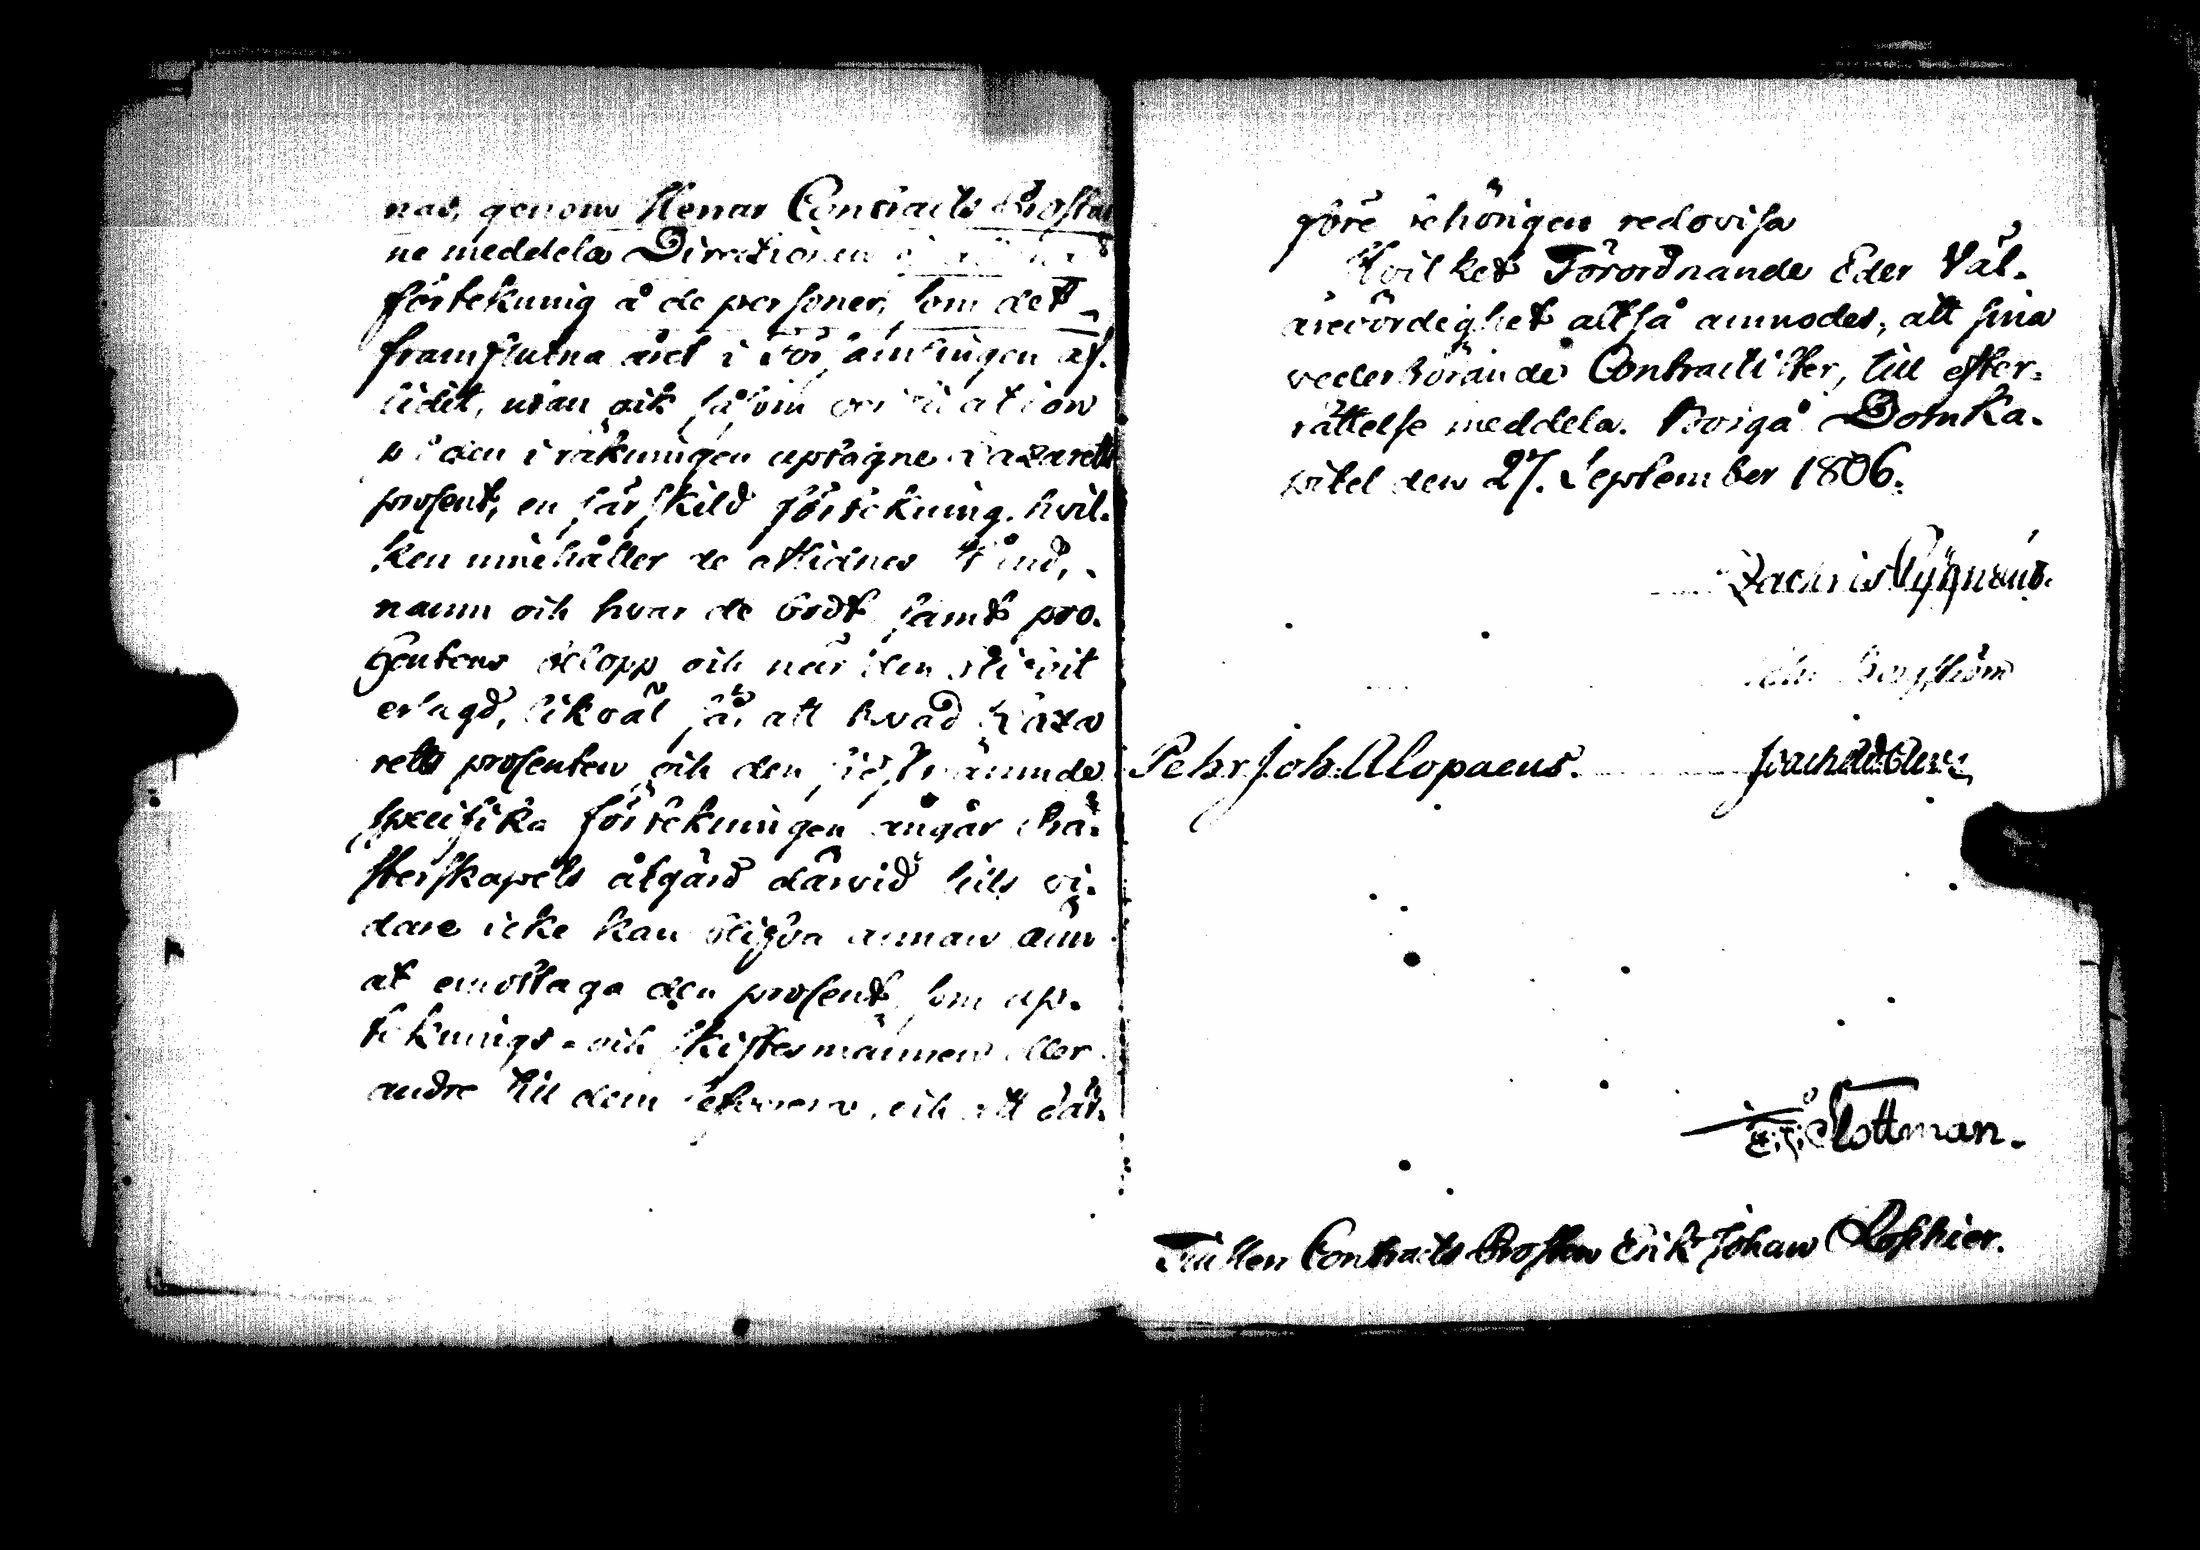 nas, genom Herrar Contracts Prostar
ne meddela Directionen
förtekning å de personer, som det
framflutna året i Församlingen af-
lidit, utan ock såsom verification
på den i räkningen uptagne Lazaretts
prosent, en särskild förtekning, hvil-
ken innehåller de aflidnes stånd,
namn och hvar de bodt samt pro-
centens belopp och när den blifvit
erlagd, likväl så, att hvad Laza
retts prosenten och den sidstnämnde
specifika förtekningen angår Prä-
sterskapets åtgärd därvid tils vi-
dare icke kan blifva annan änn
at emottaga den prosent, som up-
teknings- och skiftesmännen eller
andre till dem leverera, och att där-
före behörigen redovisa
Hvilket Förordnande Eder Väl-
ärevördighet altså anmodes, att sina
vederbörande Contractister, till efter-
rättelse meddela. Borgå Domka-
pitel den 27. September 1806.
Zachris Cygnæus.
Joh. Borgström
Pehr Joh. Alopaeus.
Slottman.
Till Herr Contracts Prosten Erik Johan